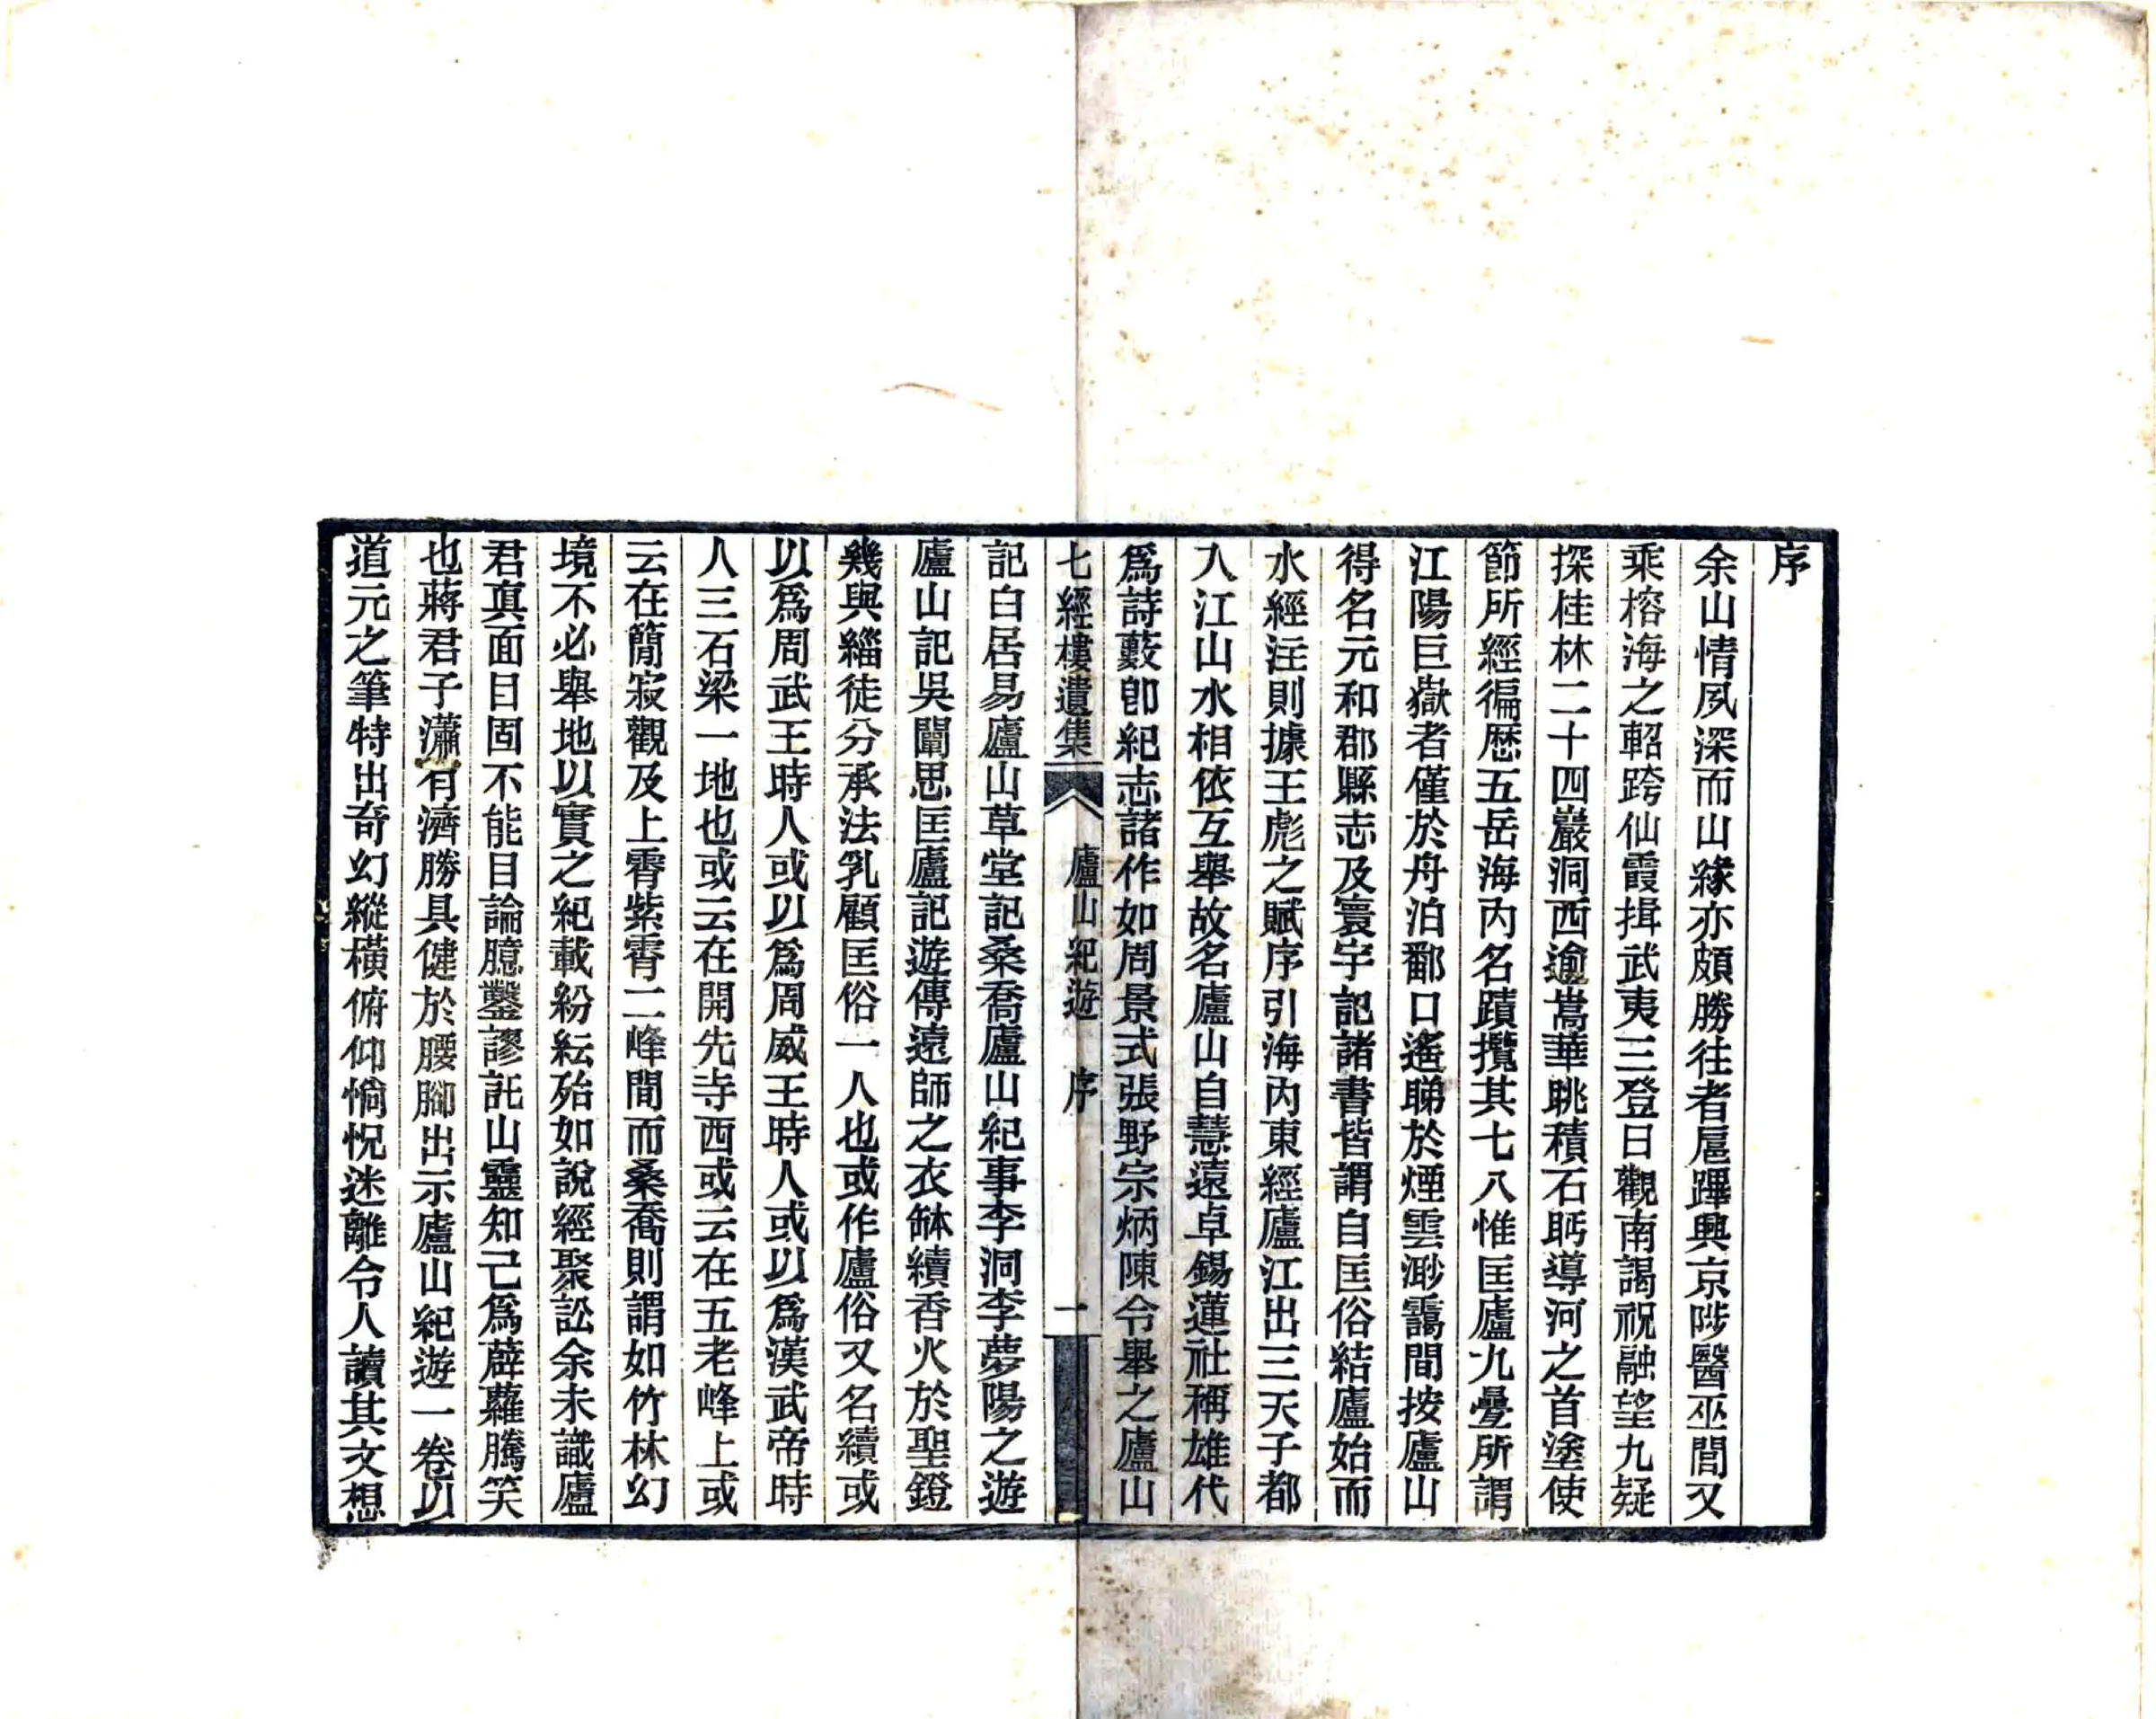 序
余山情夙深而山緣亦頗勝往者扈蹕興京陟醫巫閭又
乘榕海之軺跨仙霞揖武夷三登日觀南謁祝融望九疑
探桂林二十四巖洞西逾嵩華眺積石眄導河之首塗使
節所經徧歷五岳海內名蹟攬其七八惟匡廬九疊所謂
江陽巨嶽者僅於舟泊鄱口遙睇於煙雲渺靄間按廬山
得名元和郡縣志及寰宇記諸書皆謂自匡俗結廬始而
水經注則據王彪之賦序引海內東經廬江出三天子都
入江山水相依互舉故名廬山自慧遠卓錫蓮社稱雄代
爲詩藪卽紀志諸作如周景式張野宗炳陳令舉之廬山
七經樓遺集 廬山紀遊 序 一
記白居易廬山草堂記桑喬廬山紀事李洞李夢陽之遊
廬山記吳闡思匡廬記遊傳遠師之衣缽續香火於聖鐙
幾與緇徒分承法乳顧匡俗一人也或作廬俗又名續或
以爲周武王時人或以爲周威王時人或以爲漢武帝時
人三石梁一地也或云在開先寺西或云在五老峰上或
云在簡寂觀及上霄紫霄二峰間而桑喬則謂如竹林幻
境不必舉地以實之紀載紛紜殆如說經聚訟余未識廬
君眞面目固不能目論臆鑿謬託山靈知己爲薜蘿騰笑
也蔣君子瀟有濟勝具健於腰腳出示廬山紀遊一卷以
道元之筆特出奇幻縱橫俯仰惝怳迷離令人讀其文想